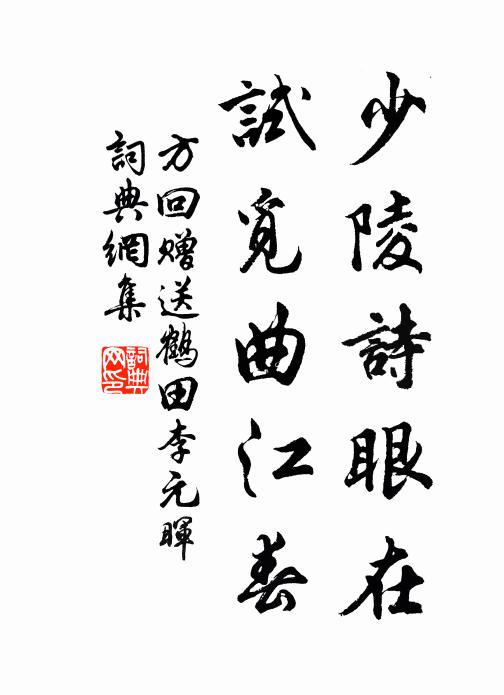 少陵詩眼在
試覓曲江春
方回贈送鶴田李元暉
詞典網集
詞典
网印